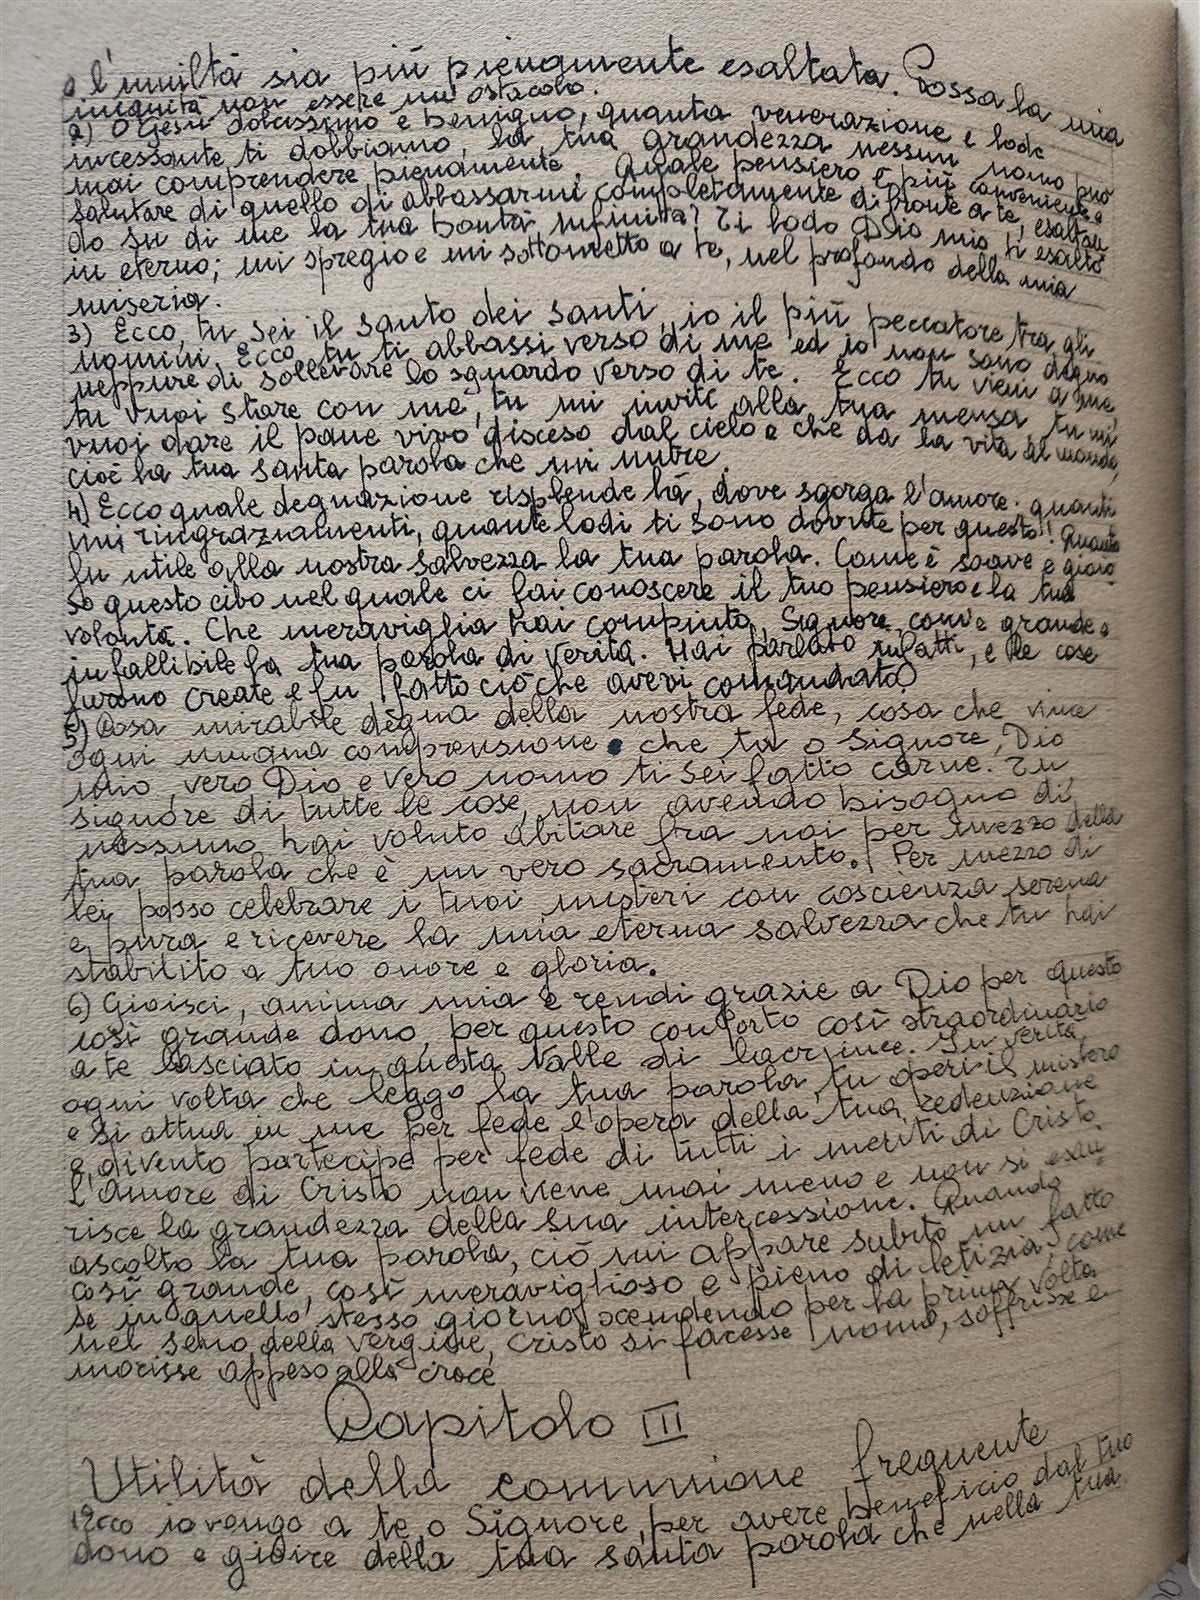 e l'umiltà sia più pienamente esaltata. Possa la mia
iniquità non essere un ostacolo.
2) O Gesù dolcissimo e benigno, quanta venerazione e lode
incessante ti dobbiamo, la tua grandezza nessun uomo può
mai comprendere pienamente. Quale pensiero è più conveniente e
salutare di quello di abbassarmi completamente di fronte a te, esaltan
do su di me la tua bontà infinita? Ti lodo Dio mio, ti esalto
in eterno; mi spregio e mi sottometto a te, nel profondo della mia
miseria.
3) Ecco, tu sei il santo dei santi, io il più peccatore tra gli
uomini. Ecco, tu ti abbassi verso di me ed io non sono degno
neppure di sollevare lo sguardo verso di te. Ecco tu vieni a me
tu vuoi stare con me, tu mi inviti alla tua mensa, tu mi
vuoi dare il pane vivo disceso dal cielo e che da la vita al mondo,
cioè la tua santa parola che mi nutre.
4) Ecco quale degnazione risplende là, dove sgorga l'amore. quanti
ringraziamenti, quante lodi ti sono dovute per questo!! Quanto
fu utile alla nostra salvezza la tua parola. Come è soave e gioio
so questo cibo nel quale ci fai conoscere il tuo pensiero e la tua
volontà. Che meraviglia hai compiuto, Signore, com'è grande e
infallibile la tua parola di verità. Hai parlato infatti, e le cose
furono create e fu fatto ciò che avevi comandato.
5) Cosa mirabile degna della nostra fede, cosa che vince
ogni umana comprensione che tu o Signore, Dio
mio, vero Dio e vero uomo ti sei fatto carne. Tu
signore di tutte le cose, non avendo bisogno di
nessuno, hai voluto abitare fra noi per mezzo della
tua parola che è un vero sacramento. Per mezzo di
lei, posso celebrare i tuoi misteri con coscienza serena
e pura e ricevere la mia eterna salvezza che tu hai
stabilito a tuo onore e gloria.
6) Gioisci, anima mia e rendi grazie a Dio per questo
così grande dono, per questo conforto così straordinario
a te lasciato in questa valle di lacrime. In verità,
ogni volta che leggo la tua parola, tu operi il mistero
e si attua in me per fede l'opera della tua redenzione
e divento partecipe per fede di tutti i meriti di Cristo
L'amore di Cristo non viene mai meno e non si esau
risce la grandezza della sua intercessione. Quando
ascolto la tua parola, ciò mi appare subito un fatto
così grande, così meraviglioso e pieno di letizia, come
se in quello stesso giorno, scendendo per la prima volta
nel seno della vergine, Cristo si facesse uomo, soffrisse e
morisse appeso alla croce
Capitolo III
Utilità della comunione frequente
1° Ecco io vengo a te, o Signore, per avere beneficio dal tuo
dono e gioire della tua santa parola che nella tua